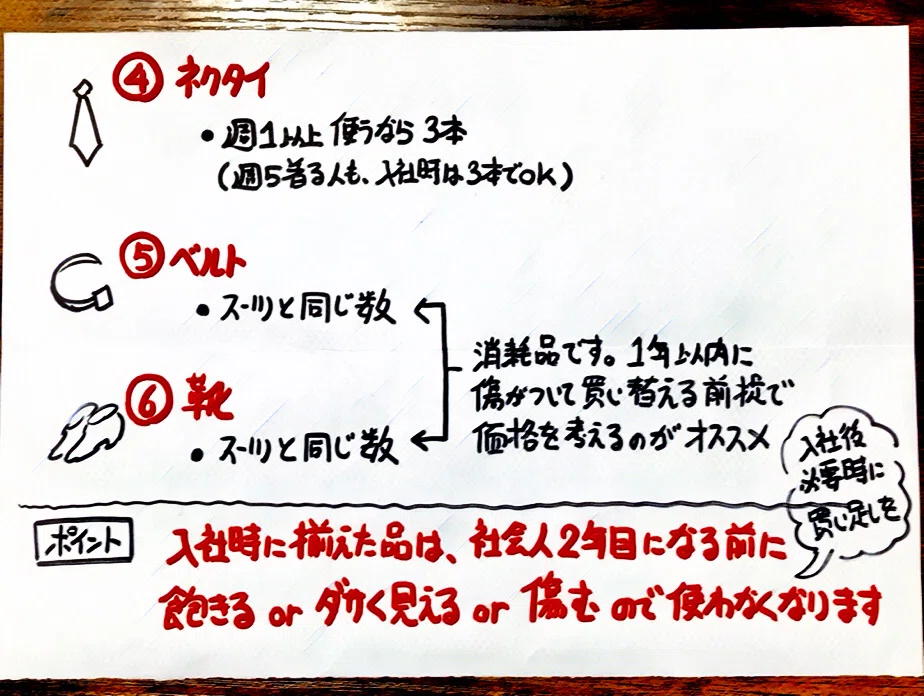 ④ ネクタイ
• 週1以上使うなら3本
(週5着る人も、入社時は3本でOK)
⑤ ベルト
• スーツと同じ数
⑥ 靴
• スーツと同じ数
消耗品です。1年以内に
傷がついて買い替える前提で
価格を考えるのがオススメ
入社後
必要時に
買い足しを
ポイント
入社時に揃えた品は、社会人2年目になる前に
飽きる or ダサく見える or 傷む ので使わなくなります